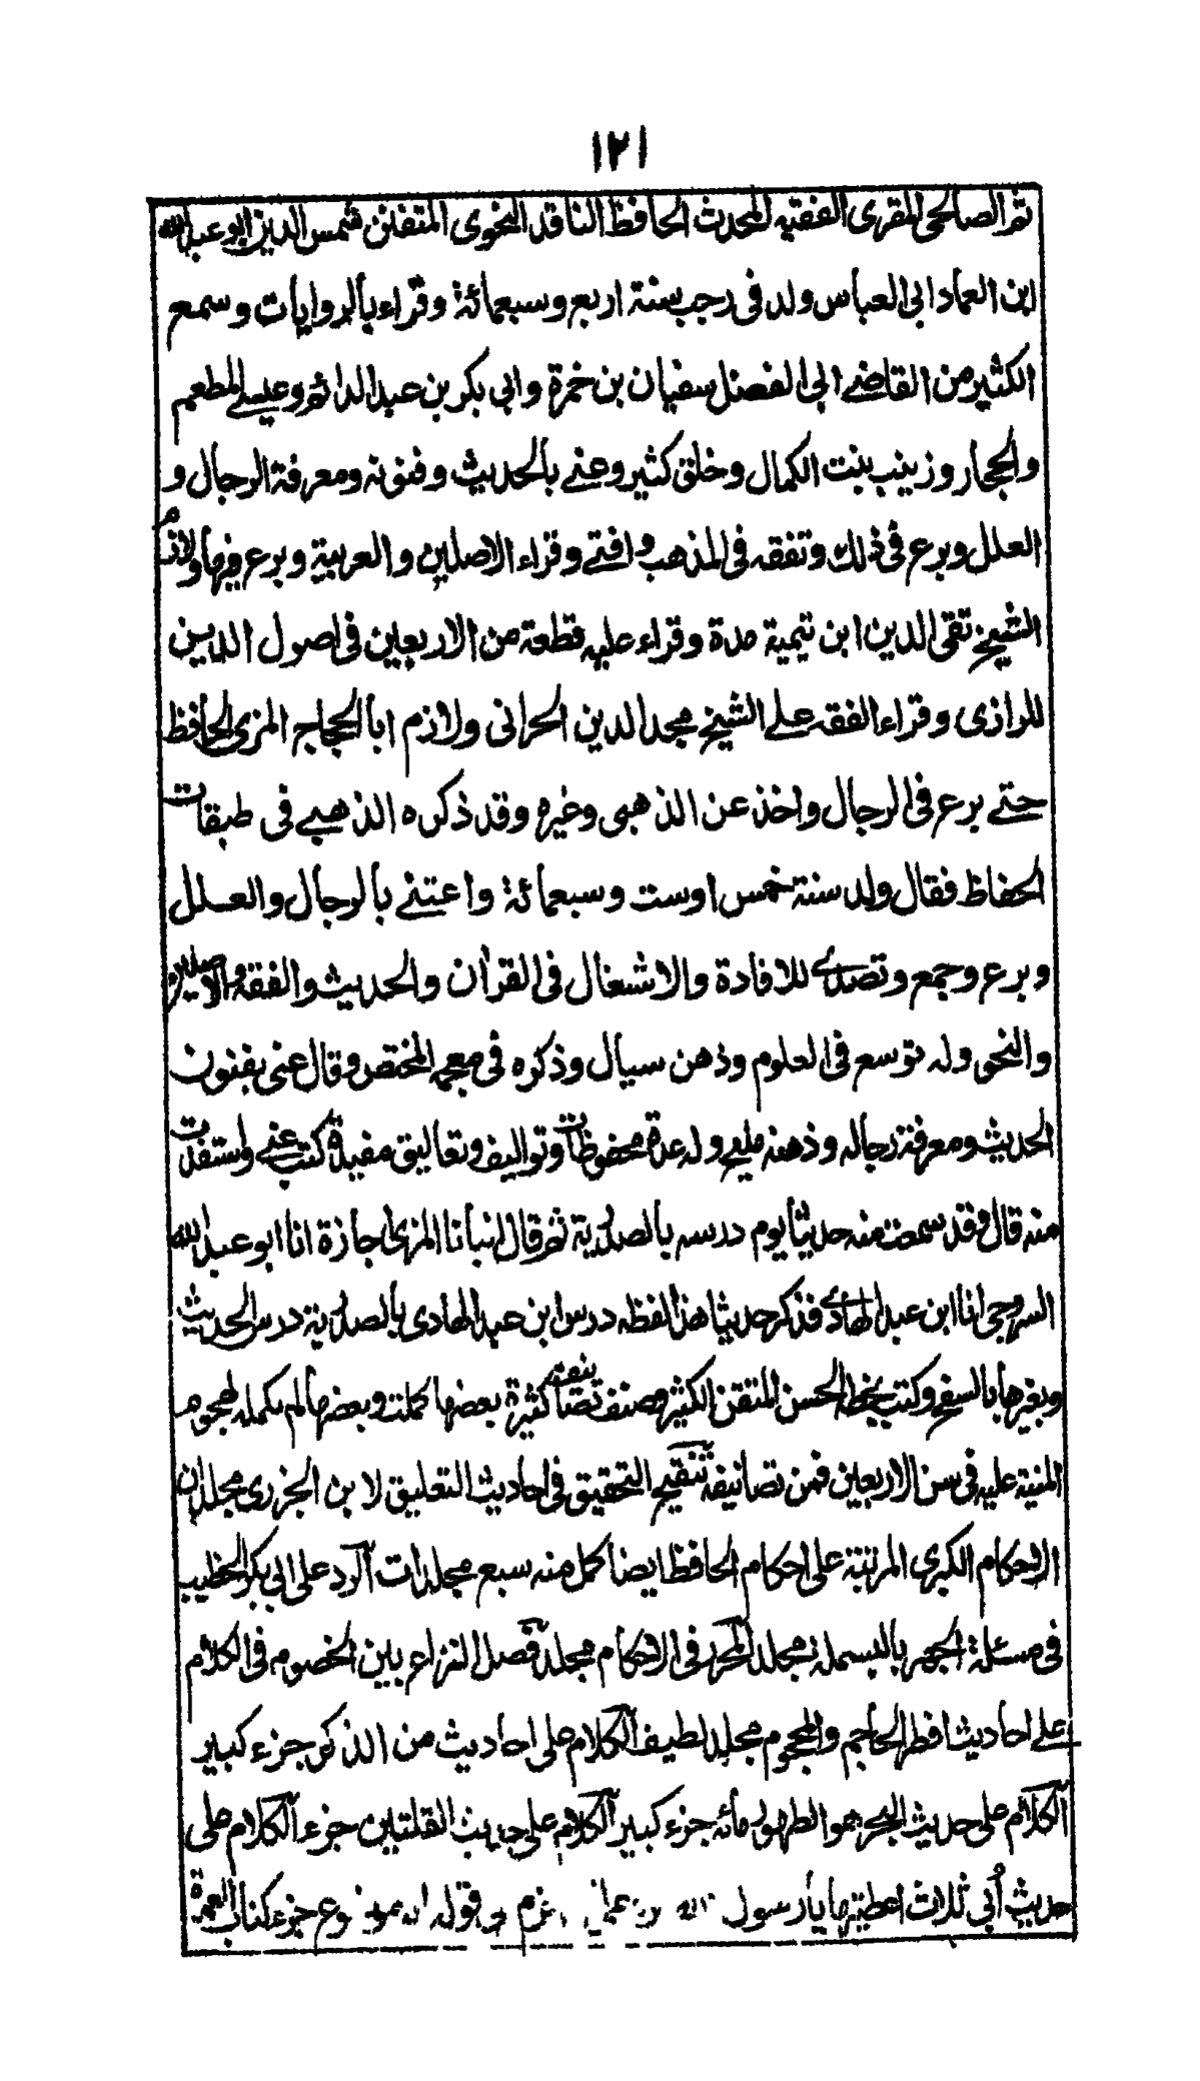 ١٢١
ثم الصالحى المقرى الفقيه المحدث الحافظ الناقد النحوى المتفنن شمس الدين ابو عبد الله
ابن العماد ابى العباس ولد فى رجب سنة اربع وسبعمائة وقراء بالروايات وسمع
الكثير من القاضى ابى الفضل سفيان بن حمزة وابى بكر بن عبد الدائم وعيسے المطعم
والحجار وزينب بنت الكمال وخلق كثير وعنے بالحديث وفنونه ومعرفة الرجال و
العلل وبرع فى ذلك وتفقه فى المذهب وافتے وقراء الاصلين والعربية وبرع فيها ولازم
الشيخ تقى الدين ابن تيمية مدة وقراء عليه قطعة من الاربعين فى اصول الدين
للرازى وقراء الفقه علے الشيخ مجد الدين الحرانى ولازم ابا الحجاج المزى الحافظ
حتے برع فى الرجال واخذ عن الذهبى وغيره وقد ذكره الذهبے فى طبقات
الحفاظ فقال ولد سنة خمس اوست وسبعمائة واعتنے بالرجال والعلل
وبرع وجمع وتصدے للافادة والاشغال فى القرأن والحديث والفقه والاصلين
والنحو وله توسع فى العلوم وذهن سيال وذكره فى معجمه المختص وقال عنى بفنون
الحديث ومعرفة رجاله وذهنه مليح وله عدة محفوظات وتواليف وتعاليق مفيدة كتب عنے واستفدت
منه قال وقد سمعت منه حديثا يوم درسه بالصدرية ثم قال انبأنا المزى اجازة انا ابو عبد الله
السروجى انا ابن عبد الهادے فذكر حديثا هذا لفظه درس ابن عبد الهادى بالصدرية درس الحديث
وبغيرها بالسفح وكتب بخطه الحسن المتقن الكثير وصنف تصانيف كثيرة بعضها كملت وبعضها لم يكمله لهجوم
المنية عليه فى سن الاربعين فمن تصانيفه تنقيح التحقيق فى احاديث التعليق لابن الجزرى مجلدان
الاحكام الكبرى المرتبة على احكام الحافظ ايضا كمل منه سبع مجلدات الرد على ابى بكر الخطيب
فى مسئلة الجهر بالبسملة مجلد المحرر فى الاحكام مجلد فصل النزاع بين الخصوم فى الكلام
علے احاديث افطر الحاجم والمحجوم مجلد لطيف الكلام على احاديث من الذكر جزء كبير
الكلام على حديث البحر هو الطهور مائه جزء كبير الكلام على حديث القلتين جزء الكلام على
حديث أبى ثلاث اعطيتها يا رسول الله جزء كتاب العمدة